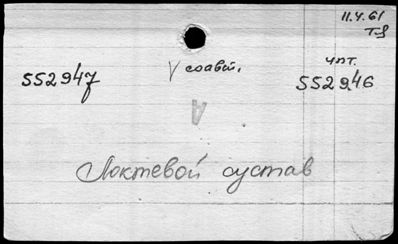 11.4.61
T-8
552947
V соавт.
чит.
552946
A
Локтевой сустав